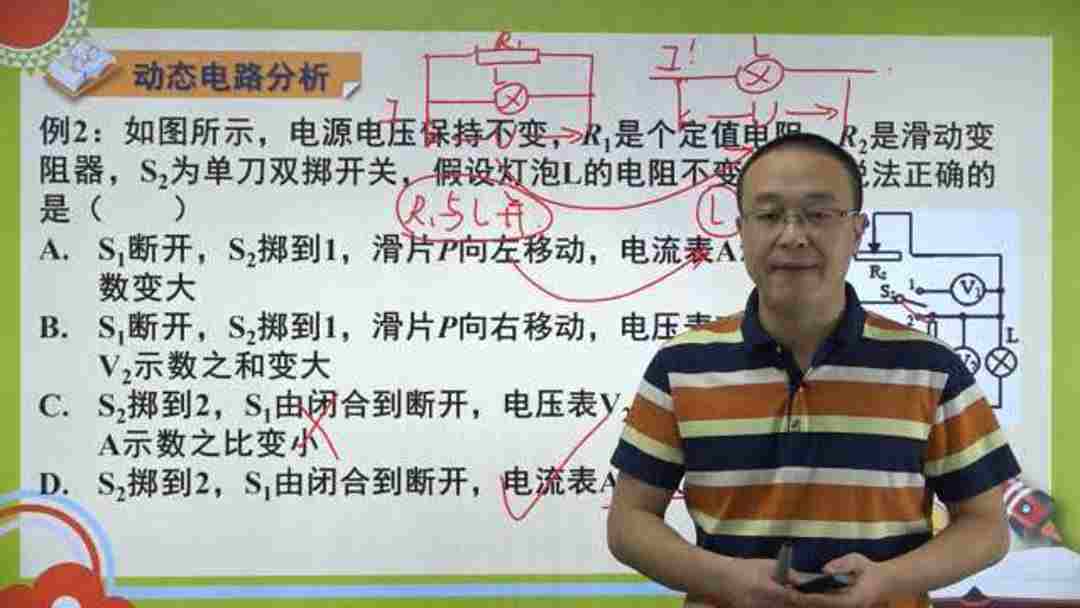 动态电路分析
R₁
L
L
I
I!
U
U
例2：如图所示，电源电压保持不变，R₁是个定值电阻，R₂是滑动变
阻器，S₂为单刀双掷开关，假设灯泡L的电阻不变 说法正确的
是（　　）
R₁与L并
L
A. S₁断开，S₂掷到1，滑片P向左移动，电流表A
数变大
B. S₁断开，S₂掷到1，滑片P向右移动，电压表
V₂示数之和变大
C. S₂掷到2，S₁由闭合到断开，电压表V₂
A示数之比变小
D. S₂掷到2，S₁由闭合到断开，电流表A
R₂
S₂
1
V₁
2
L